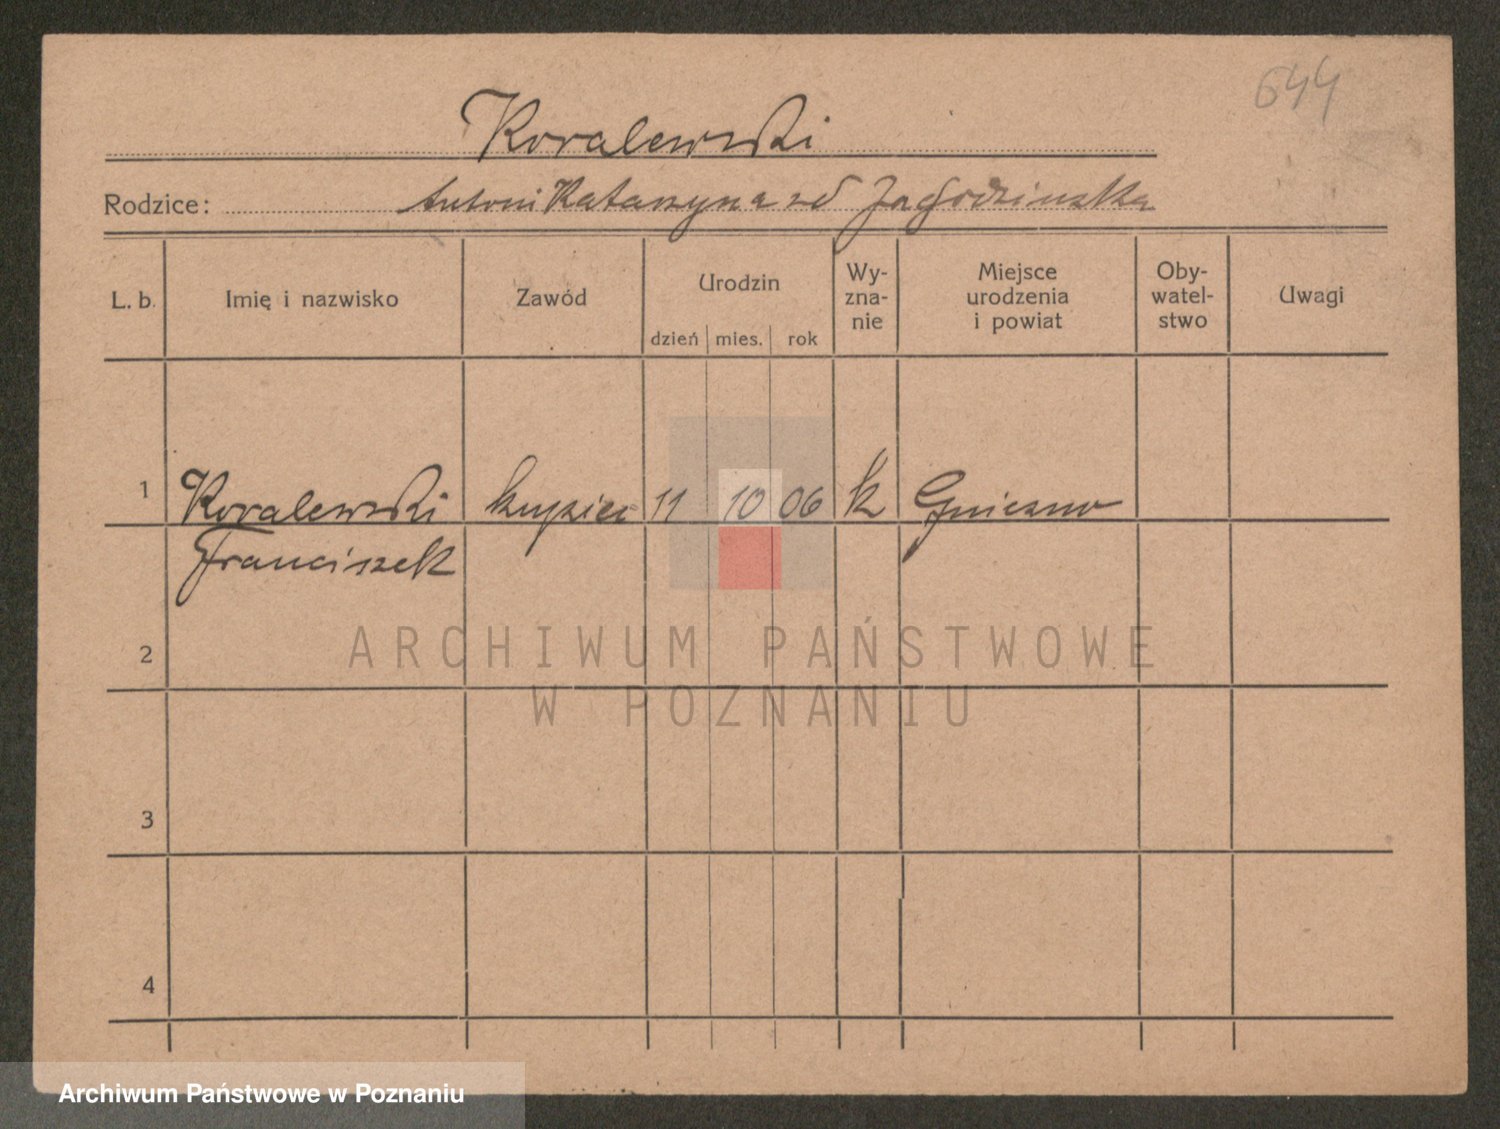 644
Koralewski
Rodzice: Antoni Katarzyna zd Jagodzinska
L. b. Imię i nazwisko Zawód Urodzin Wy- Miejsce Oby- Uwagi
zna- urodzenia watel-
nie i powiat stwo
dzień mies. rok
1 Koralewski kupiec 11 10 06 k Gniezno
Franciszek
2
ARCHIWUM PAŃSTWOWE
W POZNANIU
3
4
Archiwum Państwowe w Poznaniu